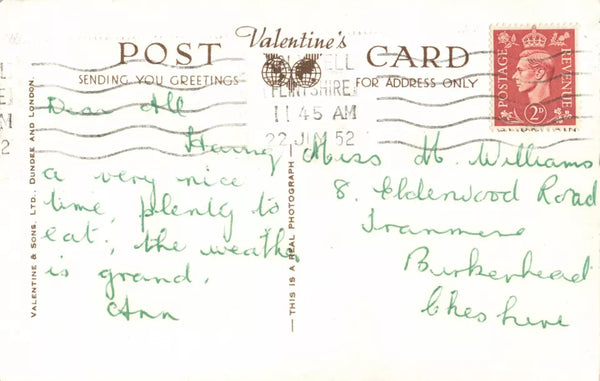 Valentine's
POST CARD
SENDING YOU GREETINGS
FOR ADDRESS ONLY
FLINTSHIRE
11 45 AM
22 JUN 52
POSTAGE
REVENUE
2D
VALENTINE & SONS, LTD., DUNDEE AND LONDON.
THIS IS A REAL PHOTOGRAPH
Dear All
Having
a very nice
time, plenty to
eat, the weather
is grand.
Ann
Miss M. Williams
8. Elderwood Road
Tranmere
Birkenhead
Cheshire